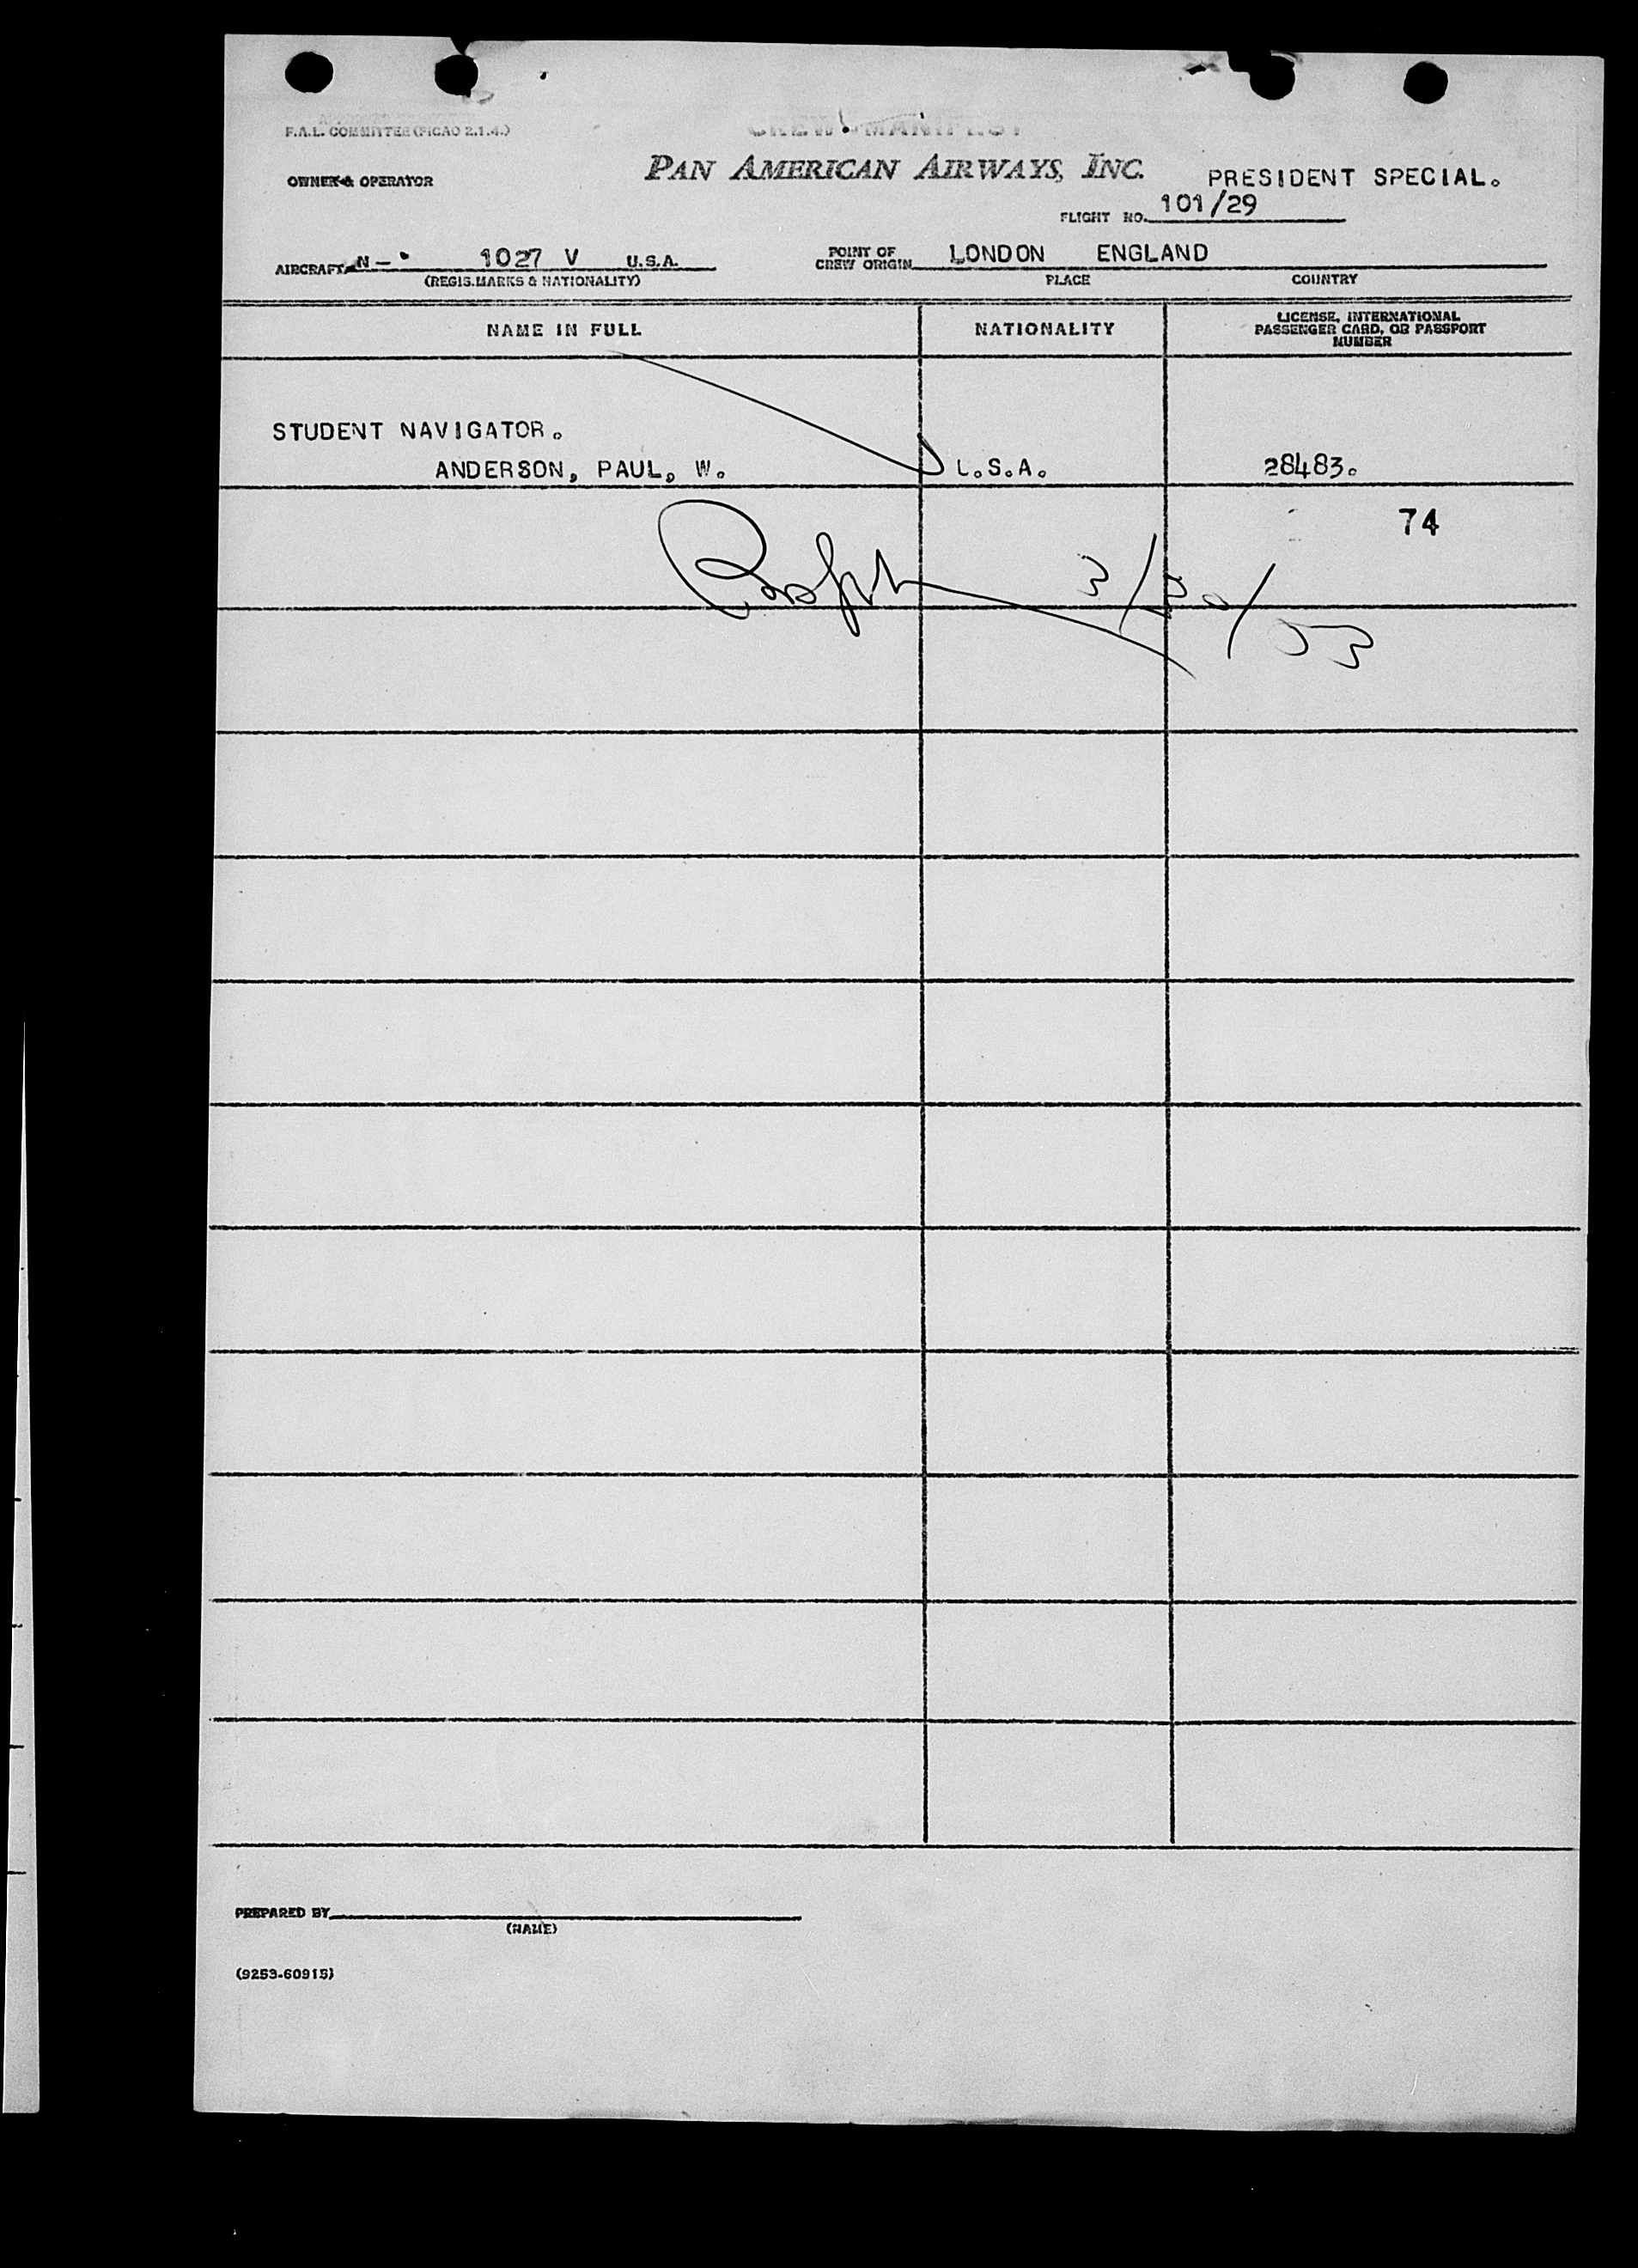 F.A.L. COMMITTEE (PICAO 2.1.4.)
CREW MANIFEST
OWNER & OPERATOR
PAN AMERICAN AIRWAYS, INC.
PRESIDENT SPECIAL.
FLIGHT NO. 101/29
AIRCRAFT N- 1027 V U.S.A.
(REGIS.MARKS & NATIONALITY)
POINT OF
CREW ORIGIN LONDON ENGLAND
PLACE COUNTRY
NAME IN FULL
NATIONALITY
LICENSE, INTERNATIONAL
PASSENGER CARD, OR PASSPORT
NUMBER
STUDENT NAVIGATOR.
ANDERSON, PAUL, W. U.S.A. 28483.
74
3/30/53
PREPARED BY
(NAME)
(9253-60915)